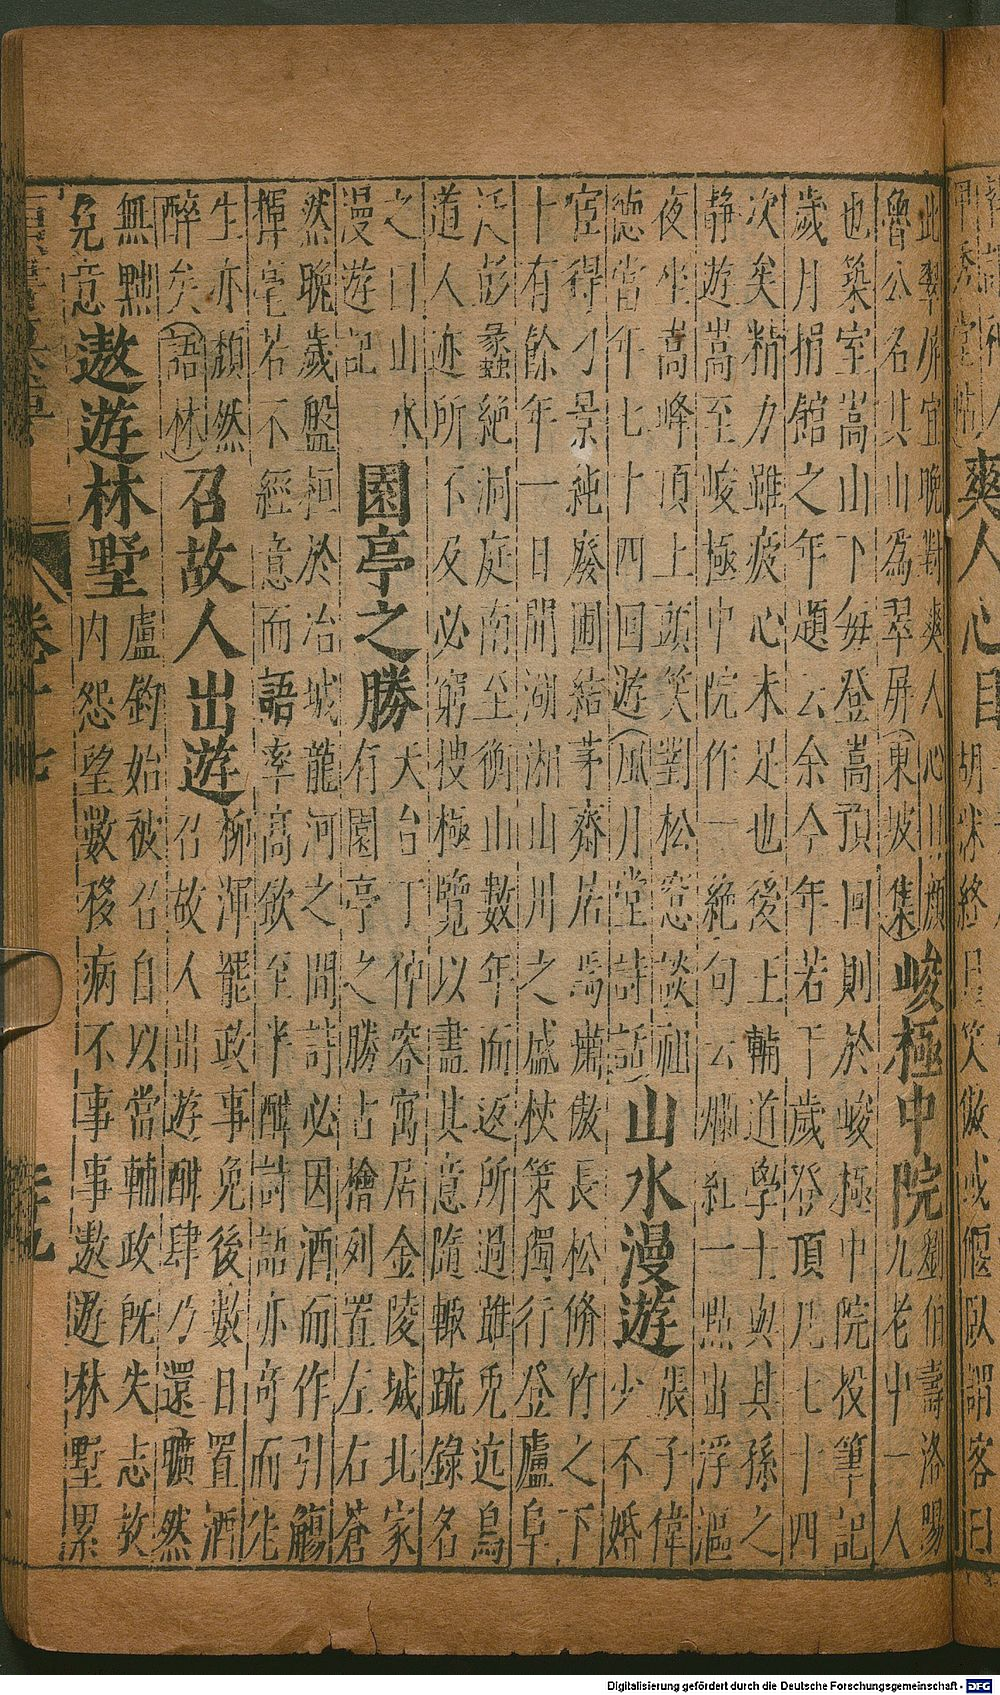 爽人心目
終日笑傲或偃臥謂客曰
此翠屏宜晚對爽人心山顏
魯公名其山為翠屏(東坡集)
峻極中院
劉伯壽洛陽
九老中一人
也築室嵩山下每登嵩頂回則於峻極中院投筆記
歲月捐館之年題云余今年若干歲登頂凡七十四
次矣精力雖疲心未足也後上輔道學士與其孫之
靜遊嵩至峻極中院作一絕句云爛紅一點出浮漚
夜坐嵩峰頂上頭笑對松窓談祖
德當年七十四回遊(風月堂詩話)
山水漫遊
張子偉
少不婚
宦得刁景純廢圃結茅齋居焉蕭傲長松脩竹之下
十有餘年一日聞湖湘山川之盛挾策獨行登廬阜
泛彭蠡絕洞庭南至衡山數年而返所過雖兎逕鳥
道人迹所不及必窮搜極覽以盡其意隨輙疏錄名
之曰山水
漫遊記
園亭之勝
天台丁仲容寓居金陵城北家
有園亭之勝古檜列置左右蒼
然晚歲盤桓於冶城龍河之間詩必因酒而作引觴
揮毫若不經意而語率高飲至半酣詩語亦奇而能
生亦頹然
醉矣(語林)
召故人出遊
柳渾罷政事免後數日置酒
召故人出遊酣肆乃還曠然
無黜
免意
遨遊林墅
盧鈞始被召自以當輔政既失志故
內怨望數移病不事事遨遊林墅累
卷十七
Digitalisierung gefördert durch die Deutsche Forschungsgemeinschaft - DFG